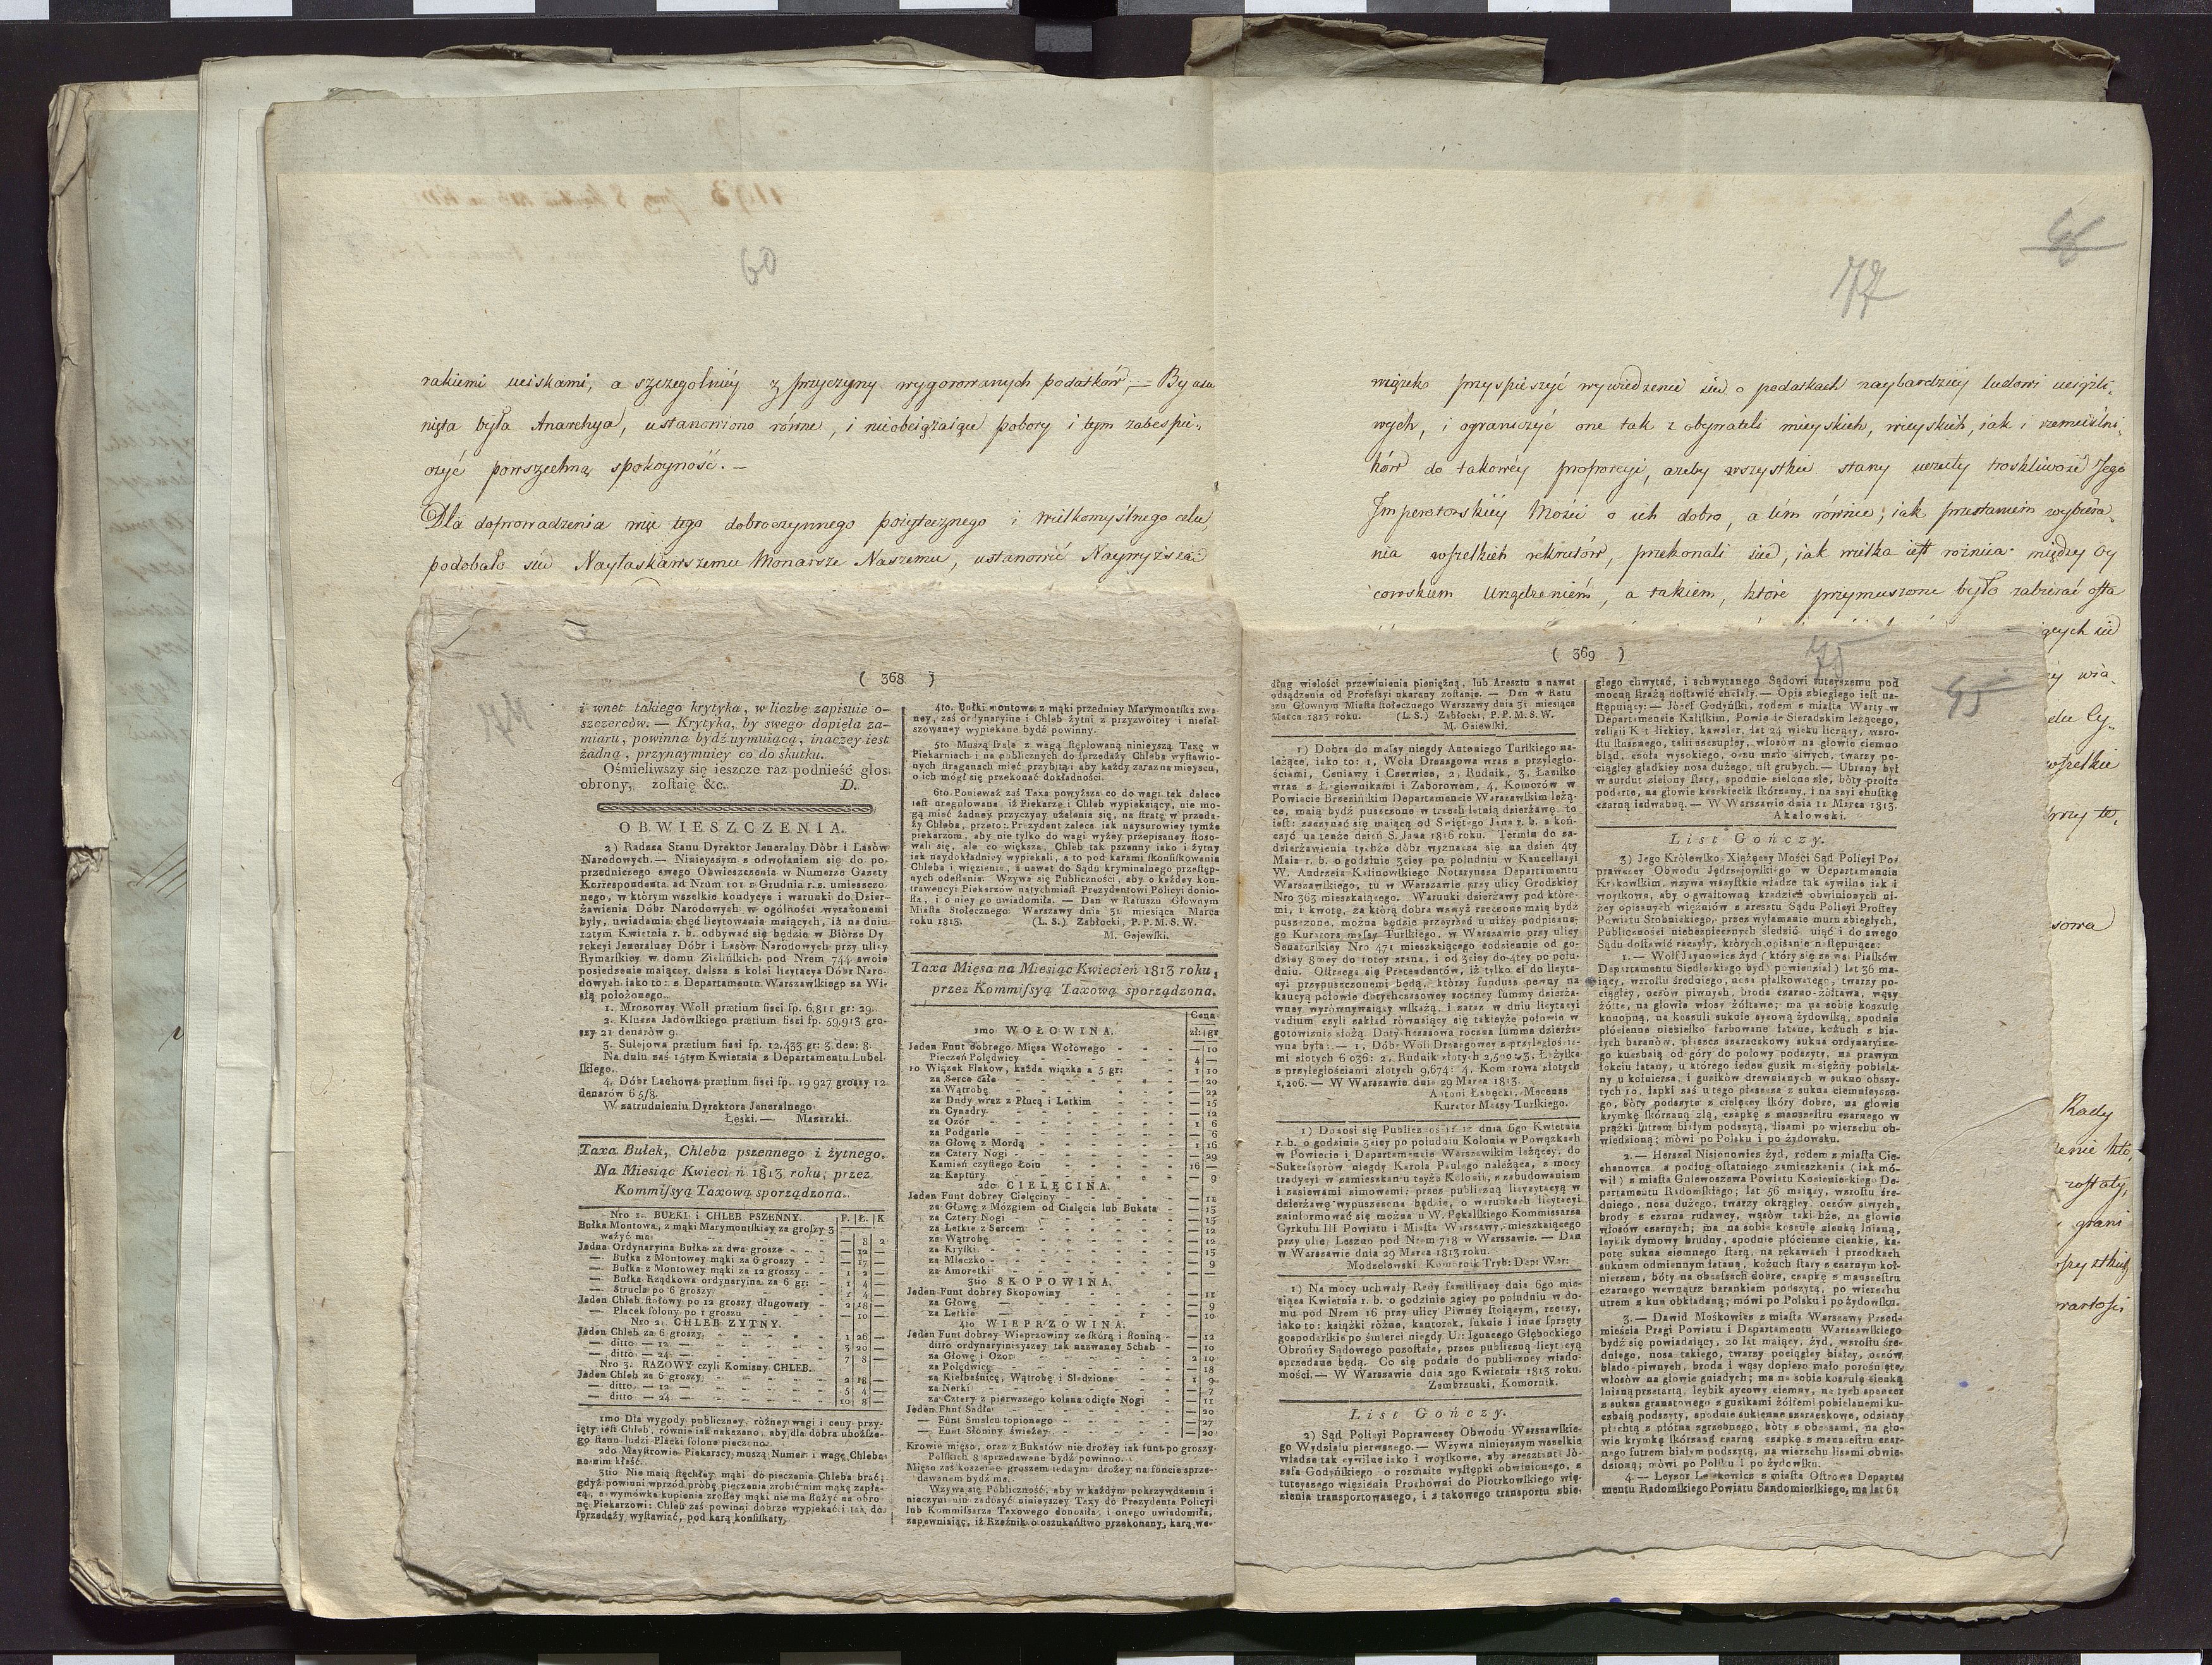 60
rakiemi uciskami, a szczegolniey z przyczyny wygorowanych podatków, — By usu
nięta była Anarchya, ustanowiono równe, i nieobciążaiące pobory i tym zabespie„
czyć powszechną spokoyność. —
Dla doprowadzenia więc tego dobroczynnego pożytecznego i wielkomyślnego celu,
podobało się Nayłaskawszemu Monarsze Naszemu, ustanowić Naywyższą
77
więcko przyspieszyć wywiedzenie się o podatkach naybardziey ludowi uciążli„
wych, i ograniczyć one tak z obywateli mieyskich, wieyskich, iak i rzemieślni„
ków do takowéy proporcyi, ażeby wszystkie stany uczuły troskliwość Jego
Imperatorskiéy Mości o ich dobro, a tém równie, iak przestaniem wybiera„
nia wszelkich rekrutów, przekonali się, iak wielka iest różnica między Oy
cowskiem Urządzeniém, a takiem, które przymuszone było zabierać osta
ących się
wszelkie
przy te„
sowa
Rady
zostały,
grani
wartości
74
( 368 )
i wnet takiego krytyka, w liczbę zapisuie o-
szczerców. — Krytyka, by swego dopięła za-
miaru, powinna bydź uymuiącą, inaczey iest
żadną, przynaymniey co do skutku.
Ośmieliwszy się ieszcze raz podnieść głos
obrony, zostaię &c. D.
OBWIESZCZENIA.
2) Radzca Stanu Dyrektor Jeneralny Dóbr i Lasów
Narodowych. — Ninieyszym z odwołaniem się do po-
przedniczego swego Obwieszczenia w Numerze Gazety
Korrespondenta ad Nrum 101 z Grudnia r. z. umieszczo-
nego, w którym wszelkie kondycye i warunki do Dzier-
żawienia Dóbr Narodowych w ogólności wyrażonemi
były, uwiadamia chęć licytowania maiących, iż na dniu
12tym Kwietnia r. b. odbywać się będzie w Biórze Dy
rekcyi Jeneralney Dóbr i Lasów Narodowych przy ulicy
Rymarskiey w domu Zielińskich pod Nrem 744 swoie
posiedzenie maiącey, dalsza z kolei licytacya Dóbr Naro-
dowych iako to: z Departamentu Warszawskiego za Wi-
słą położonego.
1. Mrozowey Woli prætium fisci fp. 6,811 gr: 29.
2. Klucza Jadowskiego prætium fisci fp. 59,913 gro-
szy 21 denarów 9.
3. Sulejowa prætium fisci fp. 12,433 gr: 3 den: 8.
Na dniu zaś 15tym Kwietnia z Departamentu Lubel-
skiego.
4. Dóbr Lachowa prætium fisci fp. 19 927 groszy 12
denarów 6 5/8.
W zatrudnieniu Dyrektora Jeneralnego
Łęski. — Mazarski.
Taxa Bułek, Chleba pszennego i żytnego.
Na Miesiąc Kwiecień 1813 roku, przez
Kommissyą Taxową sporządzona.
Nro 1. BUŁKI i CHLEB PSZENNY. F. Ł. K
Bułka Montowa, z mąki Marymontskiey za groszy 3
ważyć ma — 8 2
Jedna Ordynaryina Bułka za dwa grosze — 12 —
— Bułka z Montowey mąki za 6 groszy — 17 —
— Bułka z Montowey mąki za 12 groszy 1 2 —
— Bułka Rządkowa ordynaryina za 6 gr: 1 4 —
— Strucla po 6 groszy 1 4 —
Jeden Chleb stołowy po 12 groszy długowaty 2 18 —
— Placek solony po 1 groszu — 10 —
Nro 2. CHLEB ZYTNY.
Jeden Chleb za 6 groszy 1 26 —
— ditto — 12 — 3 20 —
— ditto — 24 — 7 8 —
Nro 3. RAZOWY czyli Komisny CHLEB.
Jeden Chleb za 6 groszy 2 18 —
— ditto — 12 — 5 4 —
— ditto — 24 — 10 8 —
1mo Dla wygody publiczney, różney wagi i ceny przy-
ięty iest Chleb, równie iak nakazano, aby dla dobra uboższe-
go stanu ludzi Placki solone pieczono.
2do Maystrowie Piekarscy muszą Numer i wagę Chleba
na nim kłaść.
3tio Nie maią stęchłey mąki do pieczenia Chleba brać;
gdyż powinni wprzód próbę pieczenia zrobić nim mąkę zapła-
cą, a wymówka kupienia zrosłey mąki nie ma służyć na obro-
nę Piekarzowi: Chleb zaś powinni dobrze wypiekać i tak do
sprzedaży wystawiać, pod karą konfiskaty,
4to. Bułki montowe z mąki przedniey Marymontska zwa-
ney, zaś ordynaryine i Chleb żytni z przyzwoitey i niefał-
szowaney wypiekane bydź powinny.
5to Muszą szale z wagą stęplowaną ninieyszą Taxę w
Piekarniach i na publicznych do sprzedaży Chleba wystawio-
nych straganach mieć przybitą: aby każdy zaraz na mieyscu,
o ich mógł się przekonać dokładności.
6to Ponieważ zaś Taxa powyższa co do wagi tak dalece
iest uregulowana iż Piekarze i Chleb wypiekaiący, nie mo-
gą mieć żadney przyczyny użalenia się, na stratę w przeda-
ży Chleba, przeto: Prezydent zaleca iak naysurowiey tymże
piekarzom, aby nie tylko do wagi wyżey przepisaney stoso-
wali się, ale co większa, Chleb tak pszenny iako i żytny
iak naydokładniey wypiekali, a to pod karami skonfiskowania
Chleba i więzienia, a nawet do Sądu kryminalnego przestęp-
nych odesłania. Wzywa się Publiczność, aby o każdey kon-
trawencyi Piekarzów natychmiast Prezydentowi Policyi donio-
sła, i o niey go uwiadomiła. — Dan w Ratuszu Głownym
Miasta Stołecznego Warszawy dnia 31 miesiąca Marca
roku 1813. (L. S.) Zabłocki, P. P. M. S. W.
M. Gajewski.
Taxa Mięsa na Miesiąc Kwiecień 1813 roku,
przez Kommissyą Taxową sporządzona.
Cena
1mo WOŁOWINA. zł: gr
Jeden Funt dobrego Mięsa Wołowego — 10
Pieczeń Polędwicy 4 —
10 Wiązek Flaków, każda wiązka a 5 gr: 1 10
za Serce całe — 20
za Wątrobę — 22
za Dudy wraz z Płucą i Letkim — 15
za Cynadry — 12
za Ozór 1 6
za Podgarle — 6
za Głowę z Mordą 1 16
za Cztery Nogi — 29
Kamień czystego Łoiu 16 —
za Kaptury — 9
2do CIELĘCINA.
Jeden Funt dobrey Cielęciny — 11
za Głowę z Mózgiem od Cielęcia lub Bukata — 13
za Cztery Nogi — 15
za Letkie z Sercem — 12
za Wątrobę — 12
za Kryski — 15
za Mleczko — 9
za Amoretki — —
3tio SKOPOWINA.
Jeden Funt dobrey Skopowiny — 11
za Głowę — 9
za Letkie — 10
4to WIEPRZOWINA.
Jeden Funt dobrey Wieprzowiny ze skórą i słoniną — 12
ditto ordynaryinieyszey tak nazwaney Schab — 10
za Głowę i Ozor 2 10
za Polędwicę — 18
za Kiełbaśnicę, Wątrobę i Sledzione 1 9
za Nerki — 7
za Cztery z pierwszego kolana odięte Nogi — 11
Jeden Funt Sadła — 20
— Funt Smalcu topionego — 27
— Funt Słoniny świeżey — 20
Krowie mięso, oraz z Bukatów nie drożey iak funt po groszy
Polskich 8 sprzedawane bydź powinno.
Mięso zaś koszerne groszem iednym drożey na foncie sprze-
dawanem bydź ma.
Wzywa się Publiczność, aby w każdym pokrzywdzeniu i
nieczynieniu zadosyć ninieyszey Taxy do Prezydenta Policyi
lub Kommissarza Taxowego donosiła, i onego uwiadomiła,
zapewniaiąc, iż Rzeźnik o oszukaństwo przekonany, karą we-
( 369 )
75
45
dług wielości przewinienia pieniężną, lub Aresztu a nawet
odsądzenia od Professyi ukarany zostanie. — Dan w Ratu
szu Głownym Miasta stołecznego Warszawy dnia 31 miesiąca
Marca 1813 roku. (L. S.) Zabłocki, P. P. M. S. W.
M. Gaiewski.
1) Dobra do massy niegdy Antoniego Turskiego na-
leżące, iako to: 1, Wola Drzazgowa wraz z przyległo-
ściami, Ceniawy i Czerwiec, 2, Rudnik, 3, Łaziłko
wraz z Ługiewnikami i Zaborowem, 4, Komorów w
Powiecie Brzezińskim Departamencie Warszawskim leżą-
ce, maią bydź puszczone w trzech letnią dzierżawę, to
iest: zaczynać się maiącą od Swiętego Jana r. b. a koń-
czyć na tenże dzień S. Jana 1816 roku. Termin do za-
dzierżawienia tychże dóbr wyznacza się na dzień 4ty
Maia r. b. o godzinie 3ciey po południu w Kancellaryi
W. Andrzeia Kalinowskiego Notaryusza Departamentu
Warszawskiego, tu w Warszawie przy ulicy Grodzkiey
Nro 363 mieszkaiącego. Warunki dzierżawy pod które-
mi, i kwotę, za którą dobra wzwyż rzeczone maią bydź
puszczone, można będzie przeyrzeć u niżey podpisane-
go Kuratora massy Turskiego, w Warszawie przy ulicy
Senatorskiey Nro 471 mieszkaiącego codziennie od go-
dziny 8mey do 10tey zrana, i od 3ciey do 4tey po połu-
dniu. Ostrzega się Pretendentów, iż tylko ci do licyta-
cyi przypuszczonemi będą, którzy fundusz pewny na
kaucyą połowie dotychczasowey roczney summy dzierża-
wney wyrównywaiący wskażą, i zaraz w dniu licytacyi
vadium czyli zakład równaiący się takieyże połowie w
gotowiznie złożą. Dotychczasowa roczna summa dzierża-
wna była: — 1, Dóbr Woli Drzazgowey z przyległościa-
mi złotych 6 036: 2, Rudnik złotych 2,500 3, Łaziłka
z przyległościami złotych 9,674: 4, Komorowa złotych
1,206. — W Warszawie dnia 29 Marca 1813.
Antoni Łabęcki, Mecenas
Kurator Massy Turskiego.
1) Donosi się Publiczności iż dnia 6go Kwietnia
r. b. o godzinie 3ciey po południu Kolonia w Powązkach
w Powiecie i Departamencie Warszawskim leżący, do
Sukcessorów niegdy Karola Paulego należąca, z mocy
tradycyi w zamieszkaniu teyże Kolonii, z zabudowaniem
i zasiewami zimowemi: przez publiczną licytacyą w
dzierżawę wypuszczona będzie, o warunkach licytacyi
zainformować się można u W. Pękalskiego Kommissarza
Cyrkułu III Powiatu i Miasta Warszawy, mieszkaiącego
przy ulicy Leszno pod Nrem 718 w Warszawie. — Dan
w Warszawie dnia 29 Marca 1813 roku.
Modzelewski, Komornik Tryb: Dept War:
1) Na mocy uchwały Rady familiyney dnia 6go mie-
siąca Kwietnia r. b. o godzinie 2giey po południu w do-
mu pod Nrem 16 przy ulicy Piwney stoiącym, rzeczy,
iako to: książki różne, kantorek, suknie i inne sprzęty
gospodarskie po śmierci niegdy U.: Ignacego Głębockiego
Obrońcy Sądowego pozostałe, przez publiczną licytacyą
sprzedane będą. Co się podaie do publiczney wiado-
mości. — W Warszawie dnia 2go Kwietnia 1813 roku.
Zembrzuski, Komornik.
List Gończy.
2) Sąd Policyi Poprawczey Obwodu Warszawskie-
go Wydziału pierwszego. — Wzywa ninieyszym wszelkie
władze tak cywilne iako i woyskowe, aby aresztant: Jó-
zefa Godyńskiego o rozmaite występki obwinionego, z
tuteyszego więzienia Prochowni do Piotrkowskiego wię-
zienia transportowanego, i z takowego transportu zbie-
głego chwytać, i schwytanego Sądowi tuteyszemu pod
mocną strażą dostawić chciały. — Opis zbiegłego iest na-
stępuiący: — Józef Godyński, rodem z miasta Warty w
Departamencie Kaliskim, Powiecie Sieradzkim leżącego,
religii Katolickiey, kawaler, lat 24 wieku liczący, wzro-
stu słusznego, talii szczupłey, włosów na głowie ciemno
bląd, czoła wysokiego, oczu mało siwych, twarzy po-
ciągłey gładkiey nosa dużego, ust grubych. — Ubrany był
w surdut zielony stary, spodnie zielone złe, bóty proste
podarte, na głowie kaszkiecik skórzany, i na szyi chustkę
czarną iedwabną. — W Warszawie dnia 11 Marca 1813.
Akałowski.
List Gończy.
3) Jego Królewsko-Xiążęcey Mości Sąd Policyi Po-
prawczey Obwodu Jędrzejowskiego w Departamencie
Krakowskim, wzywa wszystkie władze tak cywilne iak i
woyskowe, aby o gwałtowną kradzież obwinionych ni-
żey opisanych więźniów z aresztu Sądu Policyi Prostey
Powiatu Stobnickiego, przez wyłamanie muru zbiegłych,
Publiczności niebezpiecznych śledzić uiąć i do swego
Sądu dostawić raczyły, których opisanie następuiące:
1. — Wolf Jaynowicz żyd (który się ze wsi Piasków
Departamentu Siedleckiego bydź powiedział) lat 36 ma-
iący, wzrostu średniego, nosa płaskowatego, twarzy po-
ciągłey, oczów piwnych, broda czarno-żółtawa, wąsy
żółte, na głowie włosy żółtawe; ma na sobie koszulę
konopną, na koszuli suknię sycową żydowską, spodnie
płócienne niebiesko farbowane łatane, kożuch z bia-
łych baranów, płaszcz szaraczkowy sukna ordynaryine-
go kuczbaią od góry do połowy podszyty, na prawym
łokciu łatany, u którego ieden guzik mosiężny pobiela-
ny u kołnierza, i guzików drewnianych w sukno obszy-
tych 10. łapki zaś u tego płaszcza z sukna ciemnieysze-
go, bóty podszyte z cielęcey skóry dobre, na głowie
krymkę skórzaną złą, czapkę z manszestru czarnego w
prążki futrem białym podszytą, lisami po wierzchu ob-
wiedzioną; mówi po Polsku i po żydowsku.
2. — Herszel Nisionowicz żyd, rodem z miasta Cie-
chanowca a podług ostatniego zamieszkania (iak mó-
wił) z miasta Gniewoszewa Powiatu Kozienickiego De-
partamentu Radomskiego; lat 56 maiący, wzrostu śre-
dniego, nosa dużego, twarzy okrągłey, oczów siwych,
brody z czarna rudawey, wąsów takichże, na głowie
włosów czarnych; ma na sobie koszulę cienką lnianą,
leybik dymowy brudny, spodnie płócienne cienkie, ka-
potę sukna ciemnego starą, na rękawach i przodkach
suknem odmiennym łataną, kożuch stary z czarnym koł-
nierzem, bóty na obcasach dobre, czapkę z manszestru
czarnego wewnątrz barankiem podszytą, po wierzchu
futrem z kun obkładaną; mówi po Polsku i po żydowsku.
3. — Dawid Mośkowicz z miasta Warszawy Przed-
mieścia Pragi Powiatu i Departamentu Warszawskiego
bydź się powiadaiący, 20 lat maiący, żyd, wzrostu śre-
dniego, nosa takiego, twarzy pociągłey białey, oczów
blado-piwnych, broda i wąsy dopiero mało porośnięte,
włosów na głowie gniadych; ma na sobie koszulę cienką
lnianą przetartą, leybik sycowy ciemny, na tych spencer
z sukna granatowego z guzikami żółtemi pobielanemi ku-
czbaią podszyty, spodnie sukienne szaraczkowe, odziany
płachtą z płótna zgrzebnego, bóty z obcasami, na gło-
wie krymkę skórzaną czarną czapkę z manszestru czar-
nego futrem białym podszytą, na wierzchu lisami obwie-
dzioną; mówi po Polsku i po żydowsku.
4. — Leyzor Leskowicz z miasta Ostrowa Departa-
mentu Radomskiego Powiatu Sandomierskiego, ma lat 62